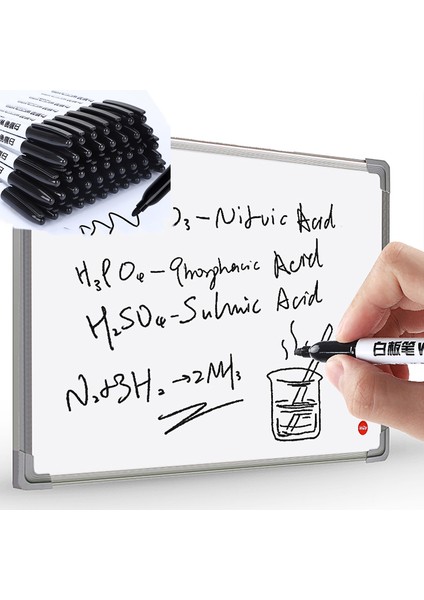 O₃-Nitric Acid
H₃PO₄-Phosphoric Acid
H₂SO₄-Sulfuric Acid
N₂+3H₂→2NH₃
白板笔 W